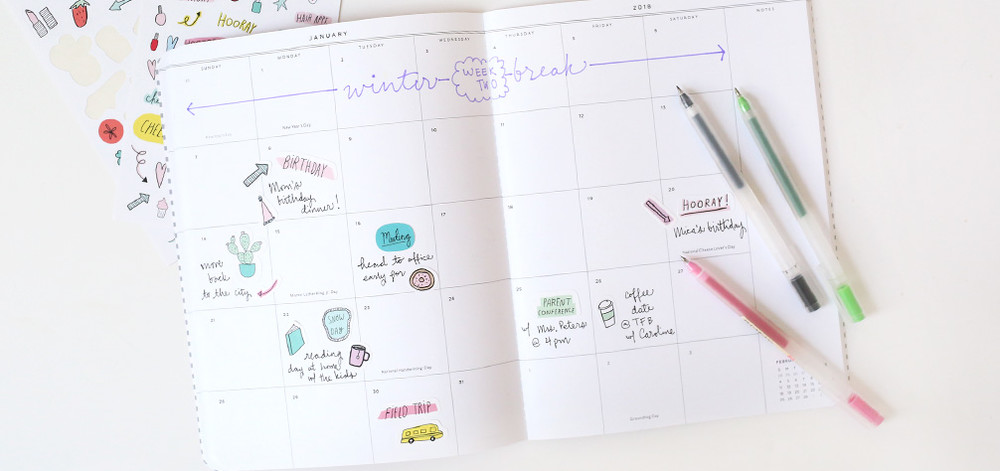 HAIR APPT
HOORAY
CHEE
JANUARY
2018
SUNDAY
MONDAY
TUESDAY
WEDNESDAY
THURSDAY
FRIDAY
SATURDAY
NOTES
1
2
3
4
5
6
winter WEEK TWO break
New Year's Day
7
8
9
10
11
12
13
BIRTHDAY
Mom's
birthday
dinner!
14
15
16
17
18
19
20
move
back
to the city
Mailing
head to office
early for
HOORAY!
Mica's birthday
National Cheese Lover's Day
21
22
23
24
25
26
27
SNOW
DAY
reading
day at home
w/ the kids
National Handwriting Day
PARENT
CONFERENCE
w/ Mrs. Peters
@ 4pm
coffee
date
@ TFB
w/ Caroline
28
29
30
31
FIELD TRIP
Groundhog Day
FEBRUARY